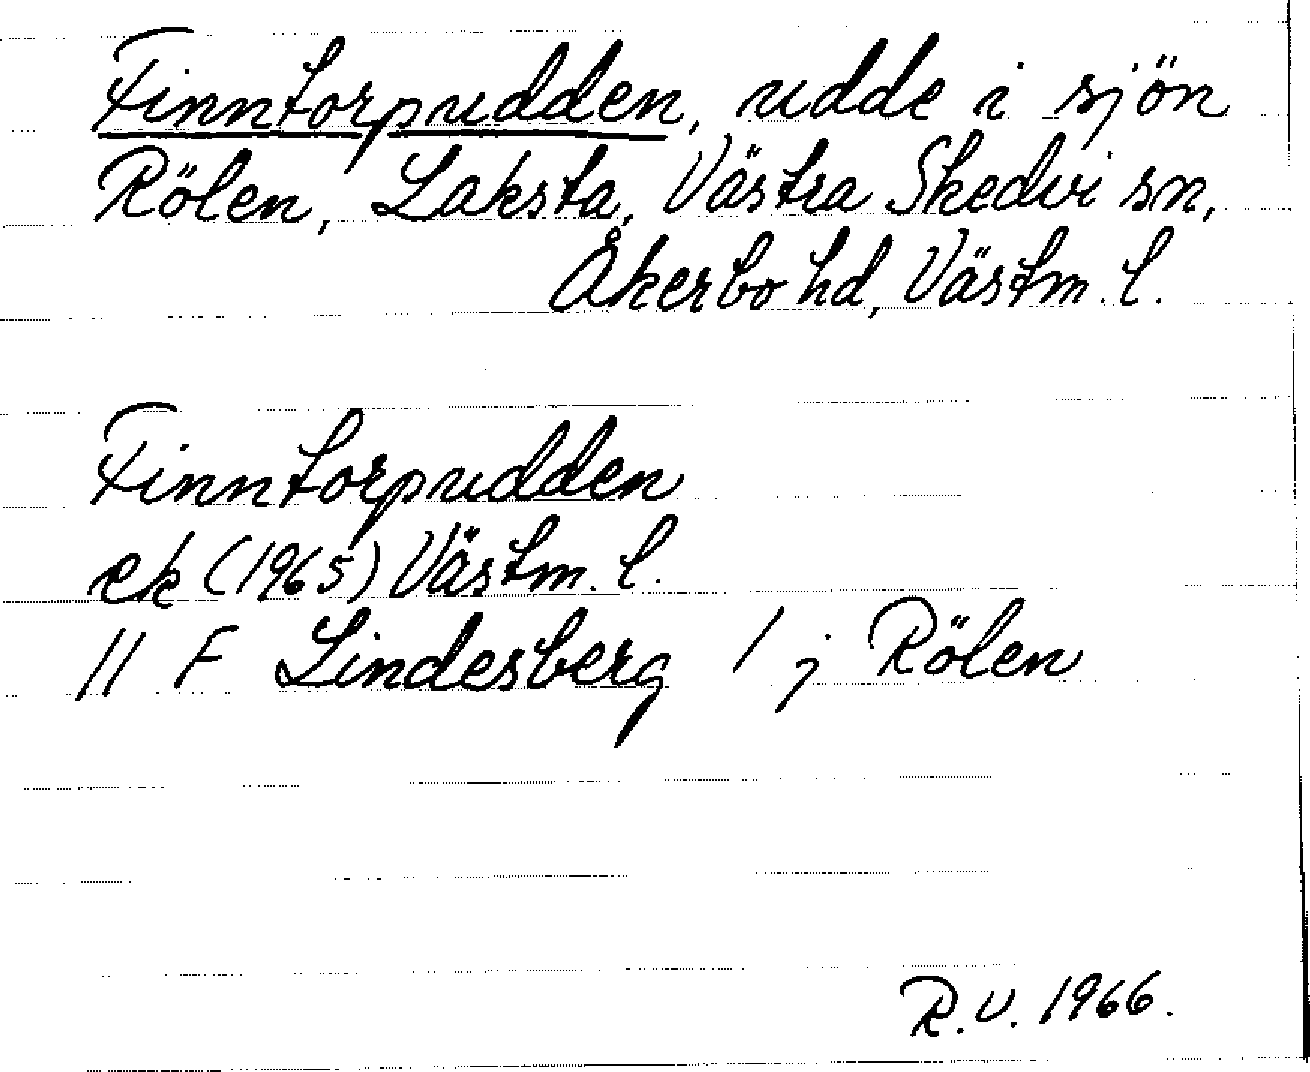 Finntorpudden, udde i sjön
Rölen, Laksta, Västra Skedvi sn,
Åkerbo hd, Västm. l.
Finntorpudden
ek (1965) Västm. l.
11 F Lindesberg / j Rölen
R.V. 1966.